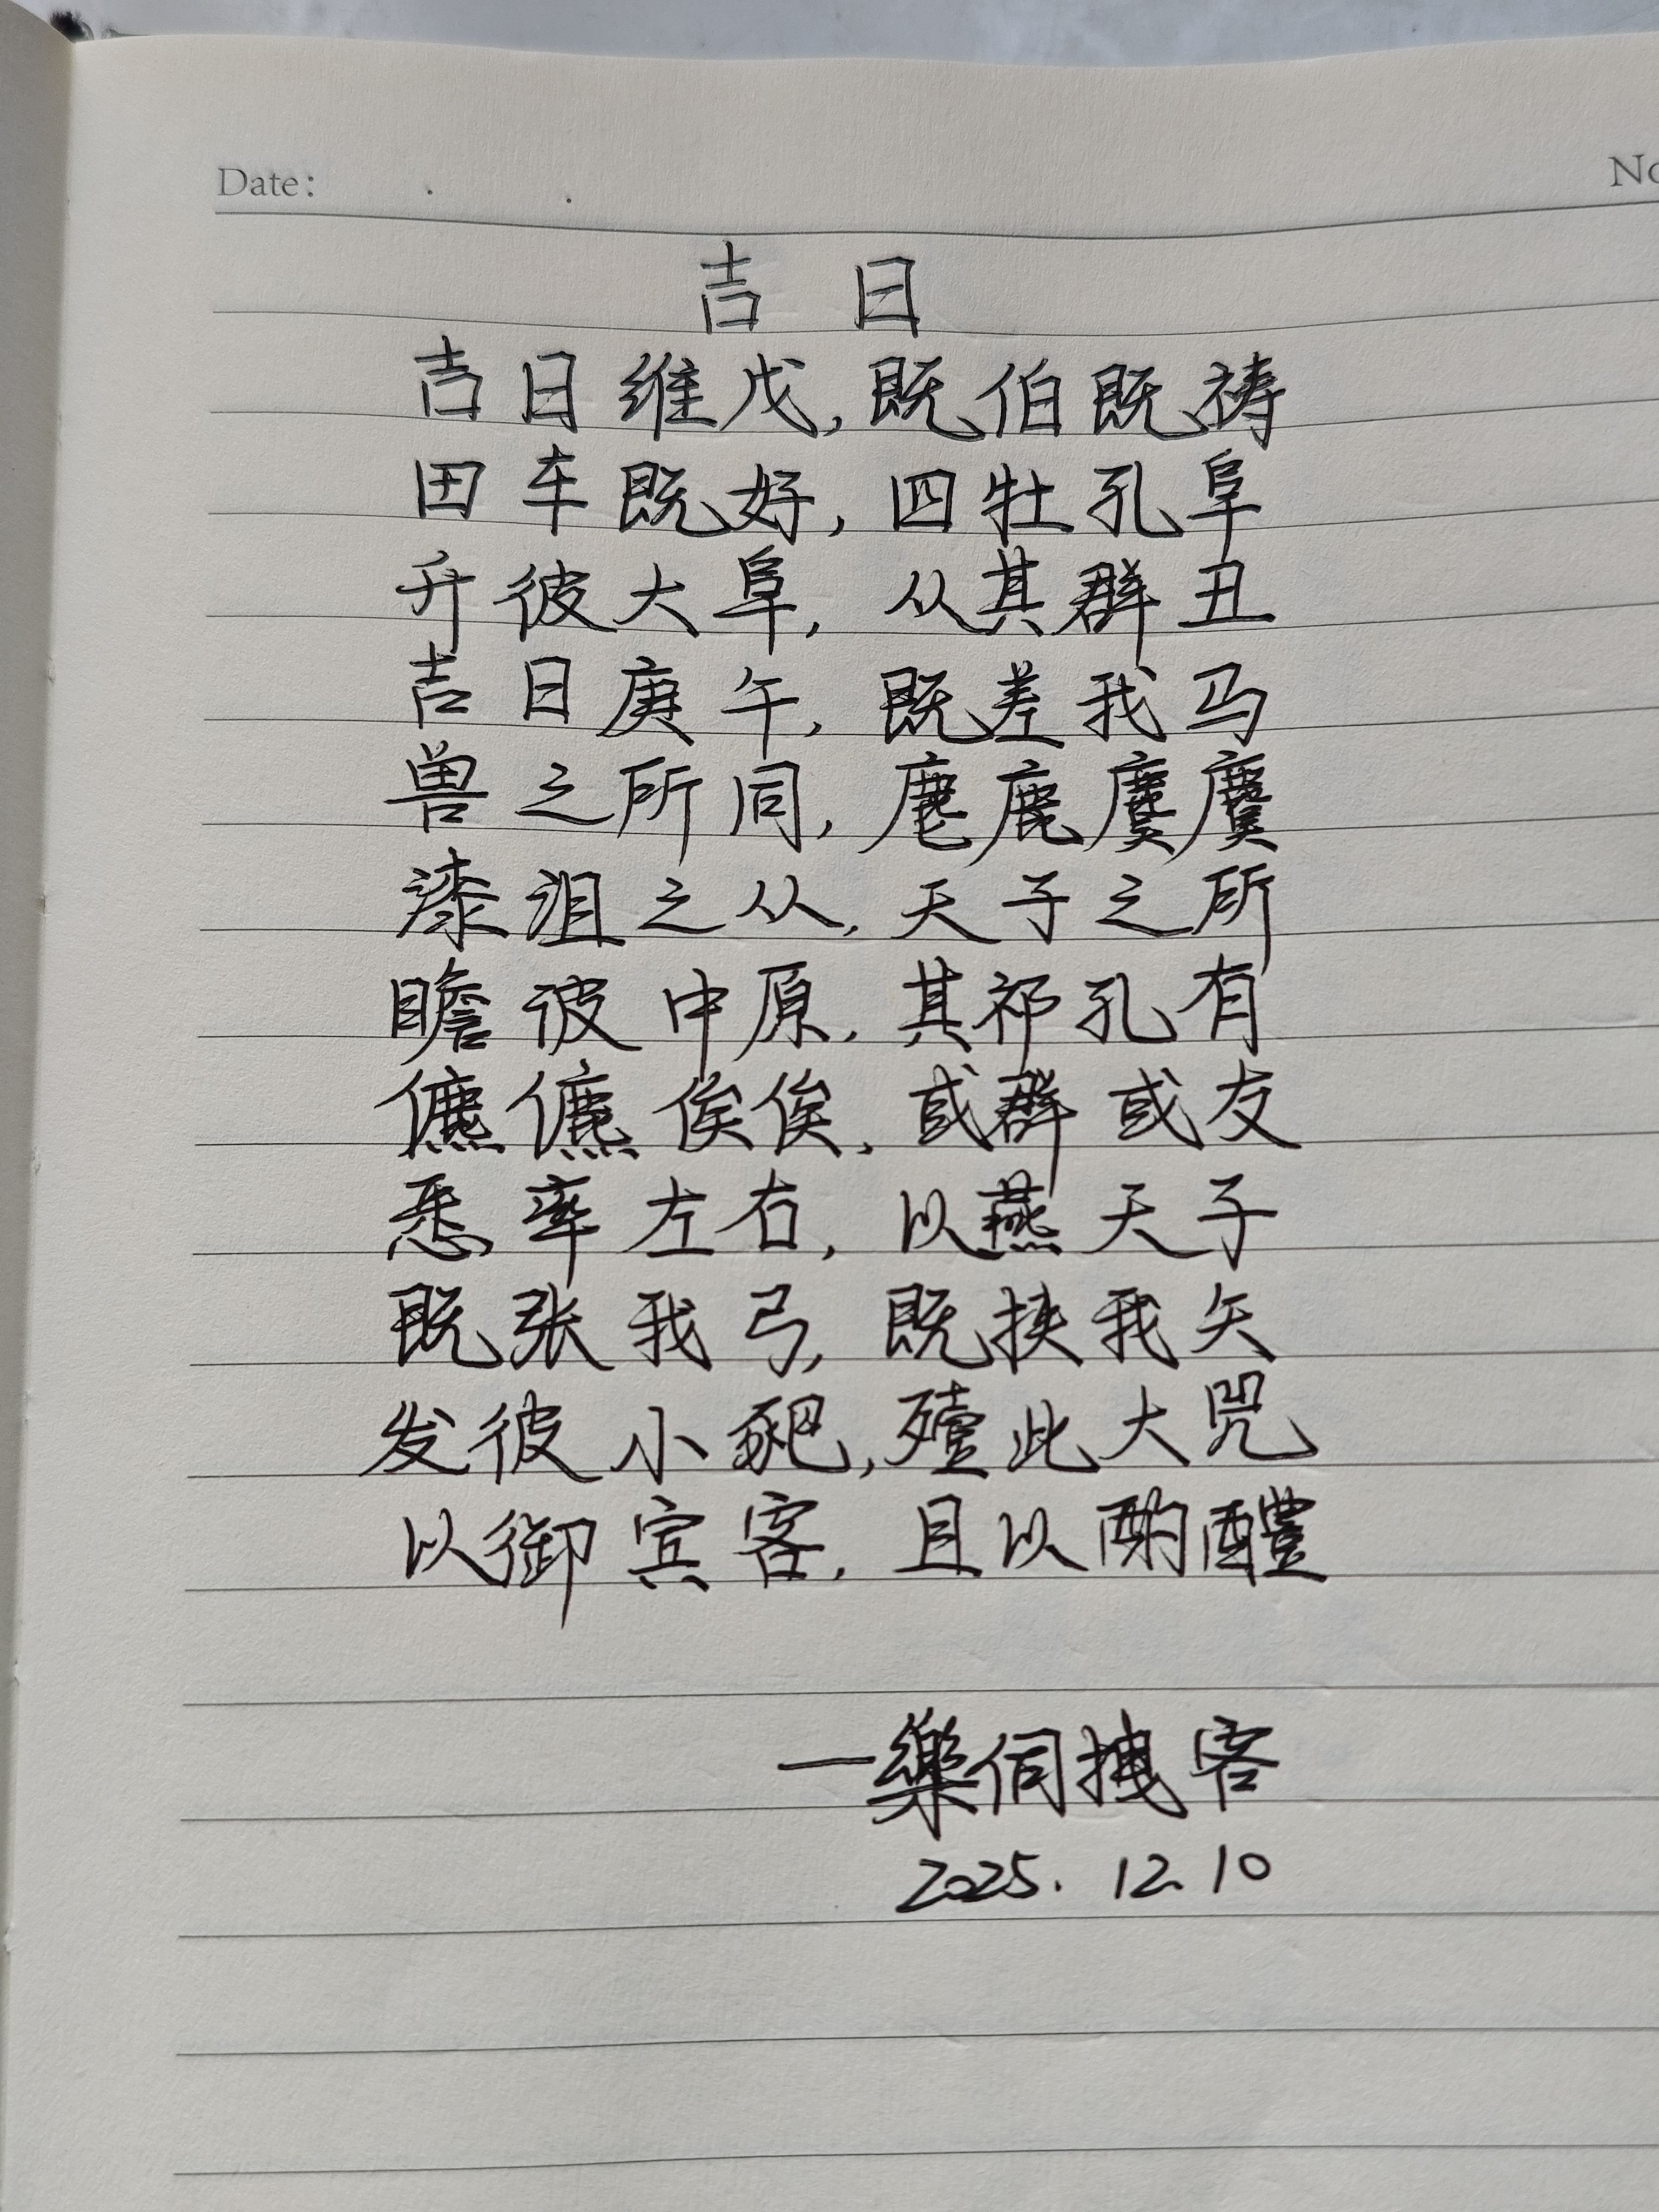 Date: . .
No
吉日
吉日维戊,既伯既祷
田车既好,四牡孔阜
升彼大阜,从其群丑
吉日庚午,既差我马
兽之所同,麀鹿麌麌
漆沮之从,天子之所
瞻彼中原,其祁孔有
儦儦俟俟,或群或友
悉率左右,以燕天子
既张我弓,既挟我矢
发彼小豝,殪此大兕
以御宾客,且以酌醴
一樂伺拽客
2025.12.10